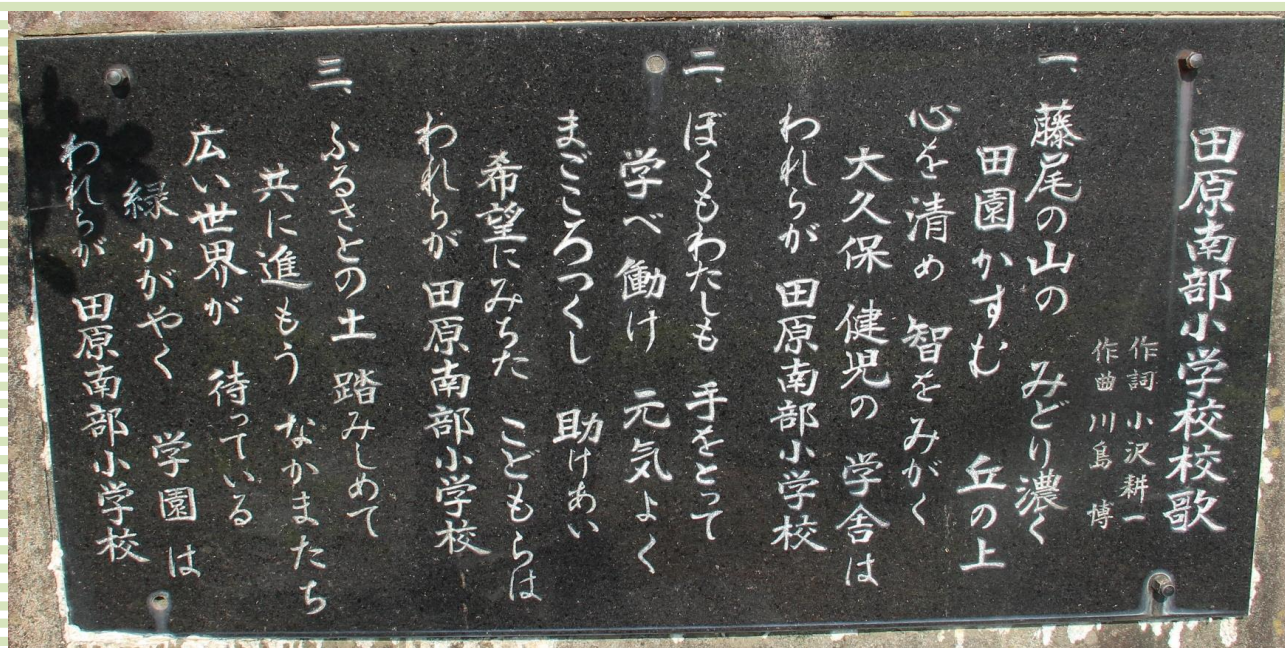 田原南部小学校校歌
作詞 小沢耕一
作曲 川島 博
一、藤尾の山の みどり濃く
田園かすむ 丘の上
心を清め 智をみがく
大久保 健児の 学舎は
われらが 田原南部小学校
二、ぼくもわたしも 手をとって
学べ 働け 元気よく
まごころつくし 助けあい
希望にみちた こどもらは
われらが 田原南部小学校
三、ふるさとの土 踏みしめて
共に進もう なかまたち
広い世界が 待っている
緑かがやく 学園は
われらが 田原南部小学校